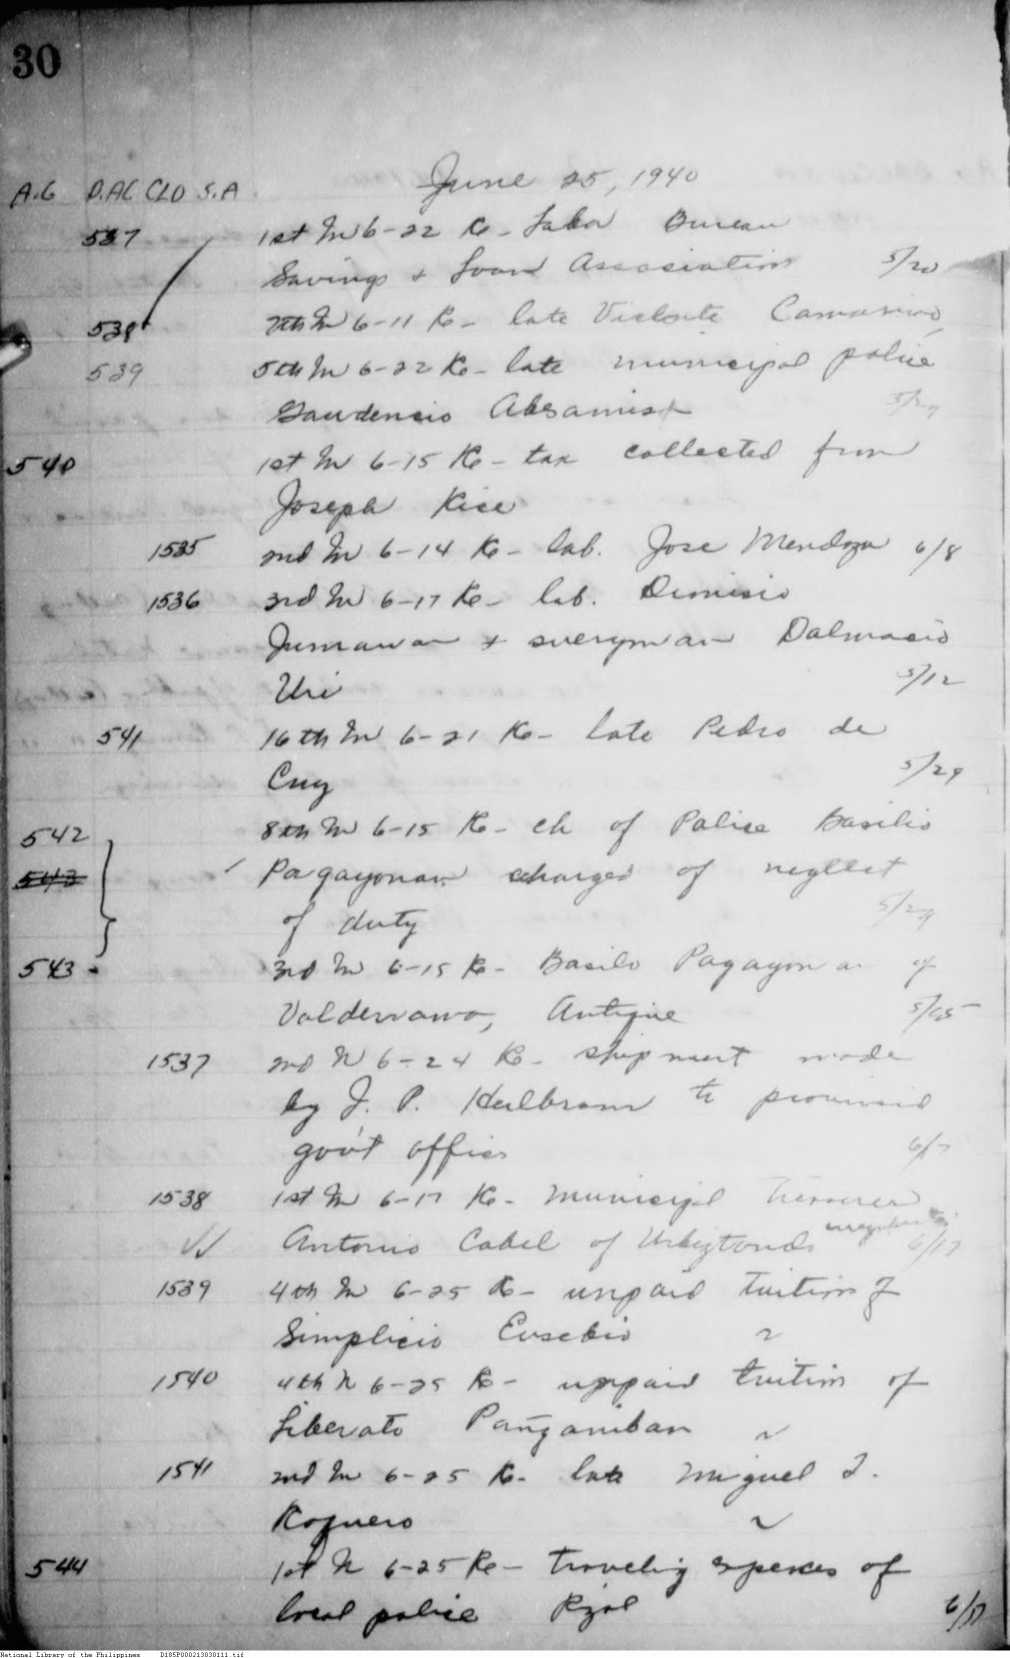 30
June 25, 1940
A.G D.AG CLD S.A
537 1st In 6-22 Re- Labor Bureau
Savings & Loan Association 5/20
538 7th In 6-11 Re- late Camarino
539 5th In 6-22 Re- late municipal police
Gaudencio 5/27
540 1st In 6-15 Re- tax collected from
Joseph Rice
1535 2nd In 6-14 Re- lab. Jose Mendoza 6/8
1536 3rd In 6-17 Re- lab. Dionisio
Jumawan & Dalmacio
Uri 5/12
541 16th In 6-21 Re- late Pedro de
Cruz 5/29
542 8th In 6-15 Re- ch of Police Basilio
543 Pagayonan charged of neglect
of duty 5/29
543 3rd In 6-15 Re- Basilo Pagayonan of
Valderrama, Antique
1537 2nd N 6-24 Re- shipment made
by J. P. Heilbronn to provincial
gov't offices 6/7
1538 1st In 6-17 Re- Municipal Treasurer
Antonio Cabel of Urbiztondo 6/17
1539 4th In 6-25 Re- unpaid tuition of
Simplicio Eusebio
1540 4th N 6-25 Re- unpaid tuition of
Liberato Pañganiban
1541 2nd In 6-25 Re- late Miguel I.
Roguero
544 1st N 6-25 Re- traveling expenses of
local police Rizal
National Library of the Philippines D185P000213030111.tif